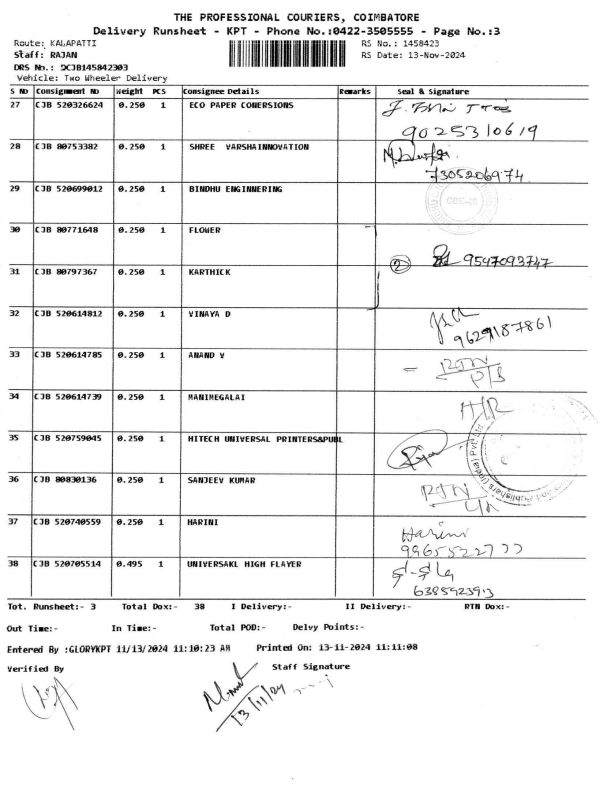 THE PROFESSIONAL COURIERS, COIMBATORE
Delivery Runsheet - KPT - Phone No.:0422-3505555 - Page No.:3
Route: KALAPATTI RS No.: 1458423
Staff: RAJAN RS Date: 13-Nov-2024
DRS No.: DCJB145842303
Vehicle: Two Wheeler Delivery
S No Consignment No Weight PCS Consignee Details Remarks Seal & Signature
27 CJB 520326624 0.250 1 ECO PAPER CONERSIONS
9025310619
28 CJB 80753382 0.250 1 SHREE VARSHAINNOVATION
7305206974
29 CJB 520699012 0.250 1 BINDHU ENGINNERING
30 CJB 80771648 0.250 1 FLOWER
2 9547093747
31 CJB 80797367 0.250 1 KARTHICK
32 CJB 520614812 0.250 1 VINAYA D
9629187861
33 CJB 520614785 0.250 1 ANAND V
RTN
P/S
34 CJB 520614739 0.250 1 MANIMEGALAI
H/R
35 CJB 520759045 0.250 1 HITECH UNIVERSAL PRINTERS&PUBL
36 CJB 80830136 0.250 1 SANJEEV KUMAR
RTN
37 CJB 520740559 0.250 1 HARINI Harini
9965522777
38 CJB 520705514 0.495 1 UNIVERSAKL HIGH FLAYER
6385923913
Tot. Runsheet:- 3 Total Dox:- 38 I Delivery:- II Delivery:- RTN Dox:-
Out Time:- In Time:- Total POD:- Delvy Points:-
Entered By :GLORYKPT 11/13/2024 11:10:23 AM Printed On: 13-11-2024 11:11:08
Verified By Staff Signature
13/11/24